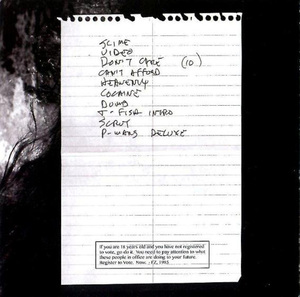 SLIME
VIDEO
DON'T CARE (10)
CAN'T AFFORD
HEAVENLY
COCAINE
DUMB
J-FISH INTRO
SCRUT
P-WANS DELUXE
If you are 18 years old and you have not registered
to vote, go do it. You need to pay attention to what
these people in office are doing to your future.
Register to Vote. Now. 1993